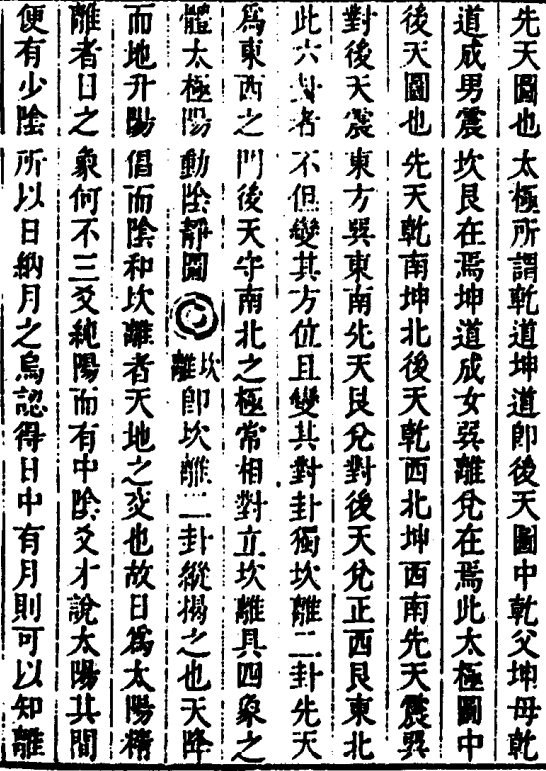 先天圖也太極所謂乾道坤道即後天圖中乾父坤母乾
道成男震坎艮在焉坤道成女巽離兌在焉此太極圖中
後天圖也先天乾南坤北後天乾西北坤西南先天震巽
對後天震東方巽東南先天艮兌對後天兌正西艮東北
此六卦者不但變其方位且變其對卦獨坎離二卦先天
為東西之門後天守南北之極常相對立坎離具四象之
體太極陽動陰靜圖坎離即坎離二卦縱揭之也天降
而地升陽倡而陰和坎離者天地之交也故日為太陽精
離者日之象何不三爻純陽而有中陰爻才說太陽其間
便有少陰所以日納月之烏認得日中有月則可以知離